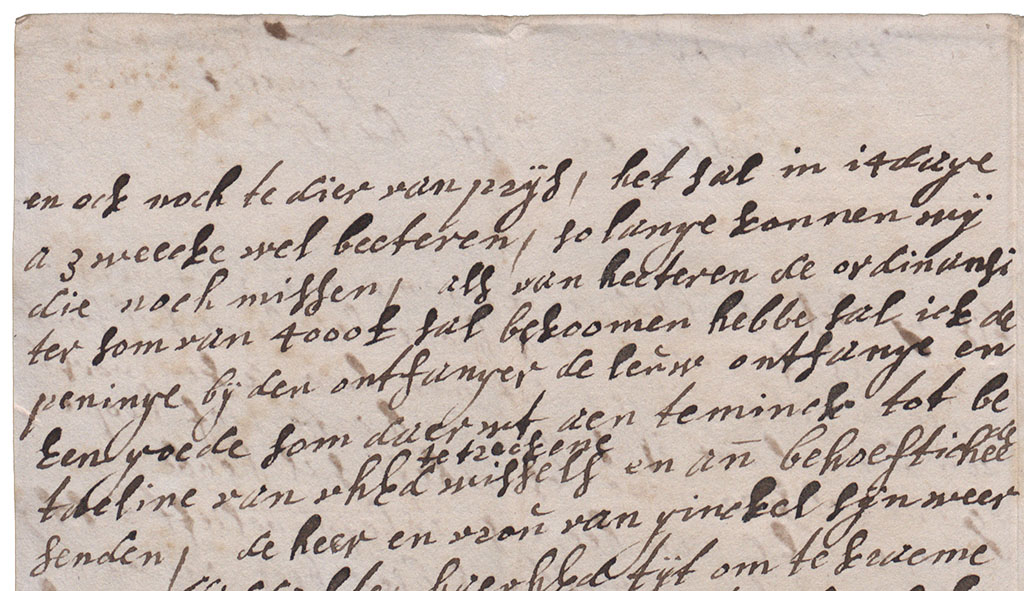 en ock noch te dier van prijs, het sal in 14 dage
a 3 weecke wel beeteren, so lange konnen wij
die noch missen, als van heeteren de ordinansi
ter som van 4000£ sal bekoomen hebbe sal ick de
peninge bij den ontfanger de leùw ontfange en
een goede som daer wt aen teminck tot be
te treckene
taeline van vhEd wissels en an behoefticheede
senden, de heer en vroù van ginckel sijn weer
haerhEd tijt om te kraeme